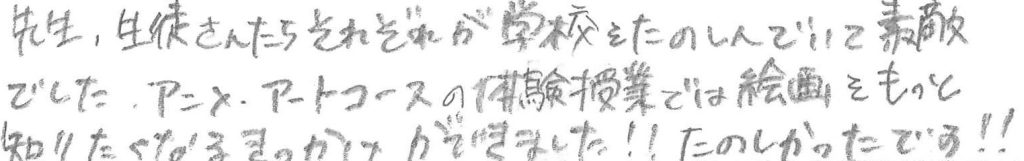 先生、生徒さんたちそれぞれが学校をたのしんでいて素敵
でした。アニメ・アートコースの体験授業では絵画をもっと
知りたくなるきっかけができました!!たのしかったです!!